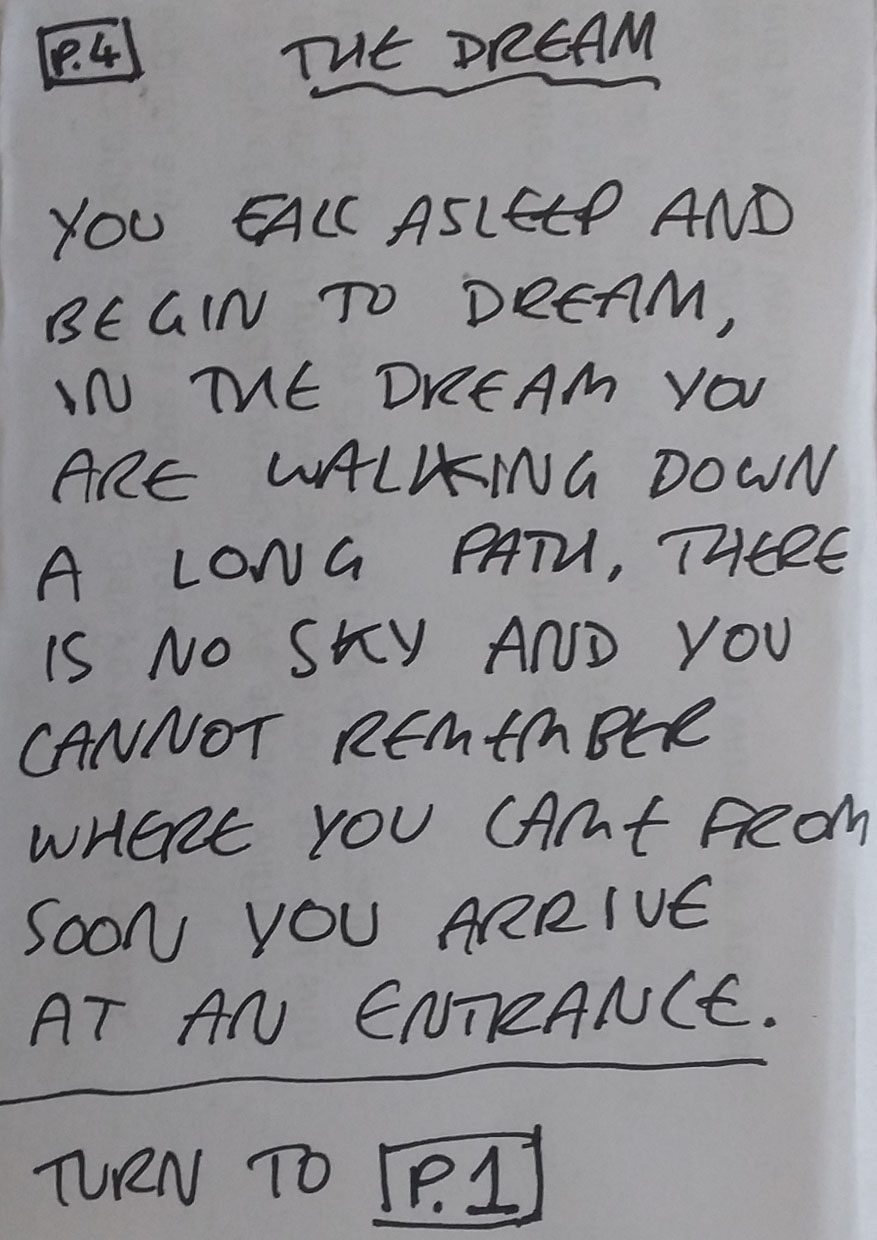 P.4 THE DREAM
YOU FALL ASLEEP AND
BEGIN TO DREAM,
IN THE DREAM YOU
ARE WALKING DOWN
A LONG PATH, THERE
IS NO SKY AND YOU
CANNOT REMEMBER
WHERE YOU CAME FROM
SOON YOU ARRIVE
AT AN ENTRANCE.
TURN TO P.1